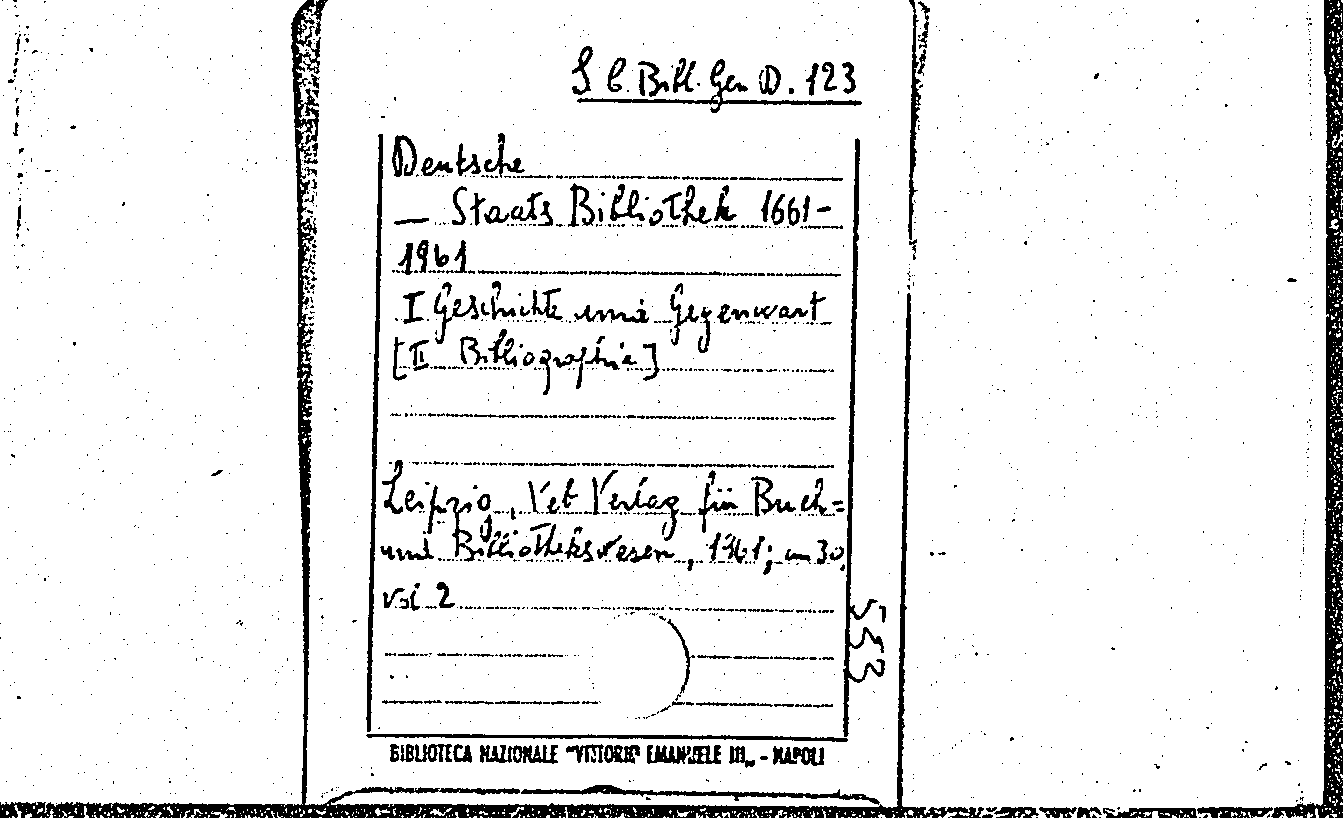 S C. Bibl. Gen D. 123
Deutsche
— Staats Bibliothek 1661-
1961
I Geschichte und Gegenwart
[II Bibliographie]
Leipzig, Veb Verlag für Buch=
und Bibliothekswesen, 1961; cm 30,
vol 2
553
BIBLIOTECA NAZIONALE "VITTORIO EMANUELE III„ - NAPOLI